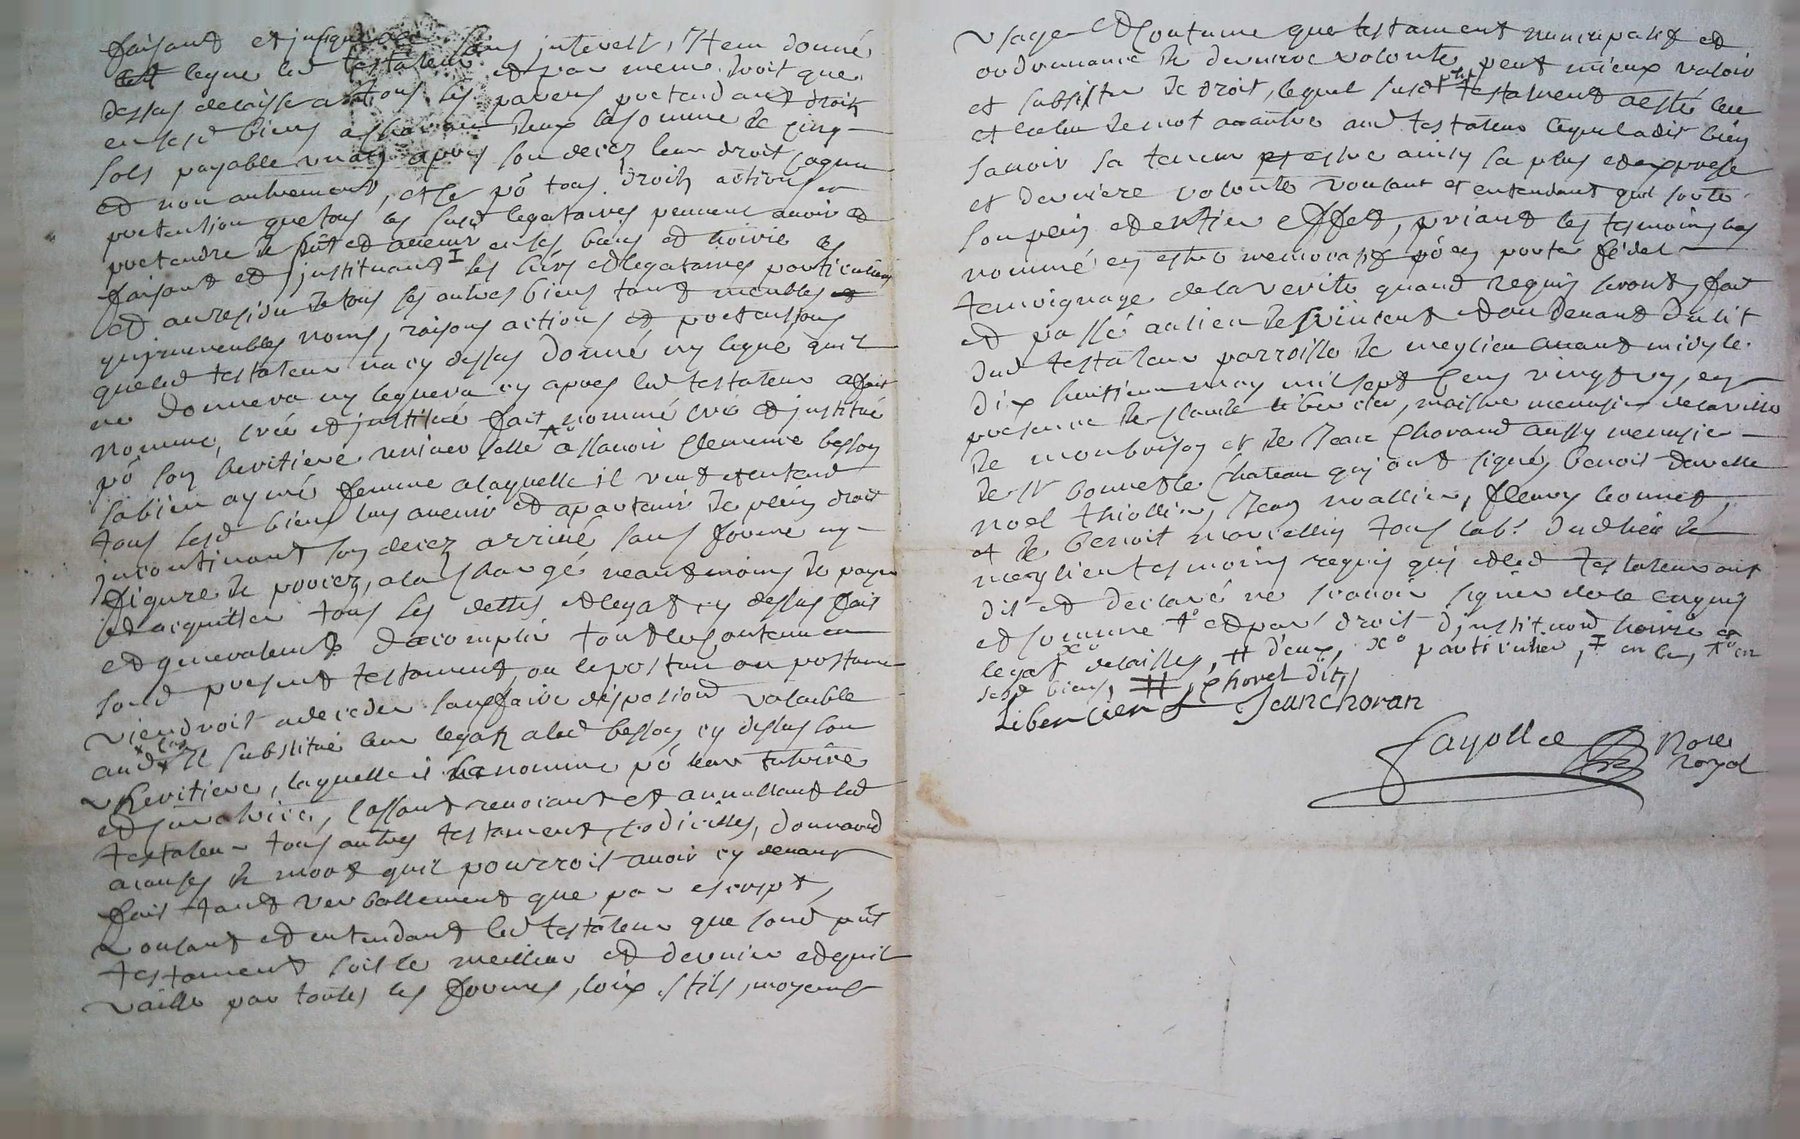 faisant et jusques sans interest, Item donne
legue led testateur et par meme droit que
dessus delaisse a tous les parens pretendant droit
en sesd biens a chacun deux la somme de cinq
sols payable un an apres son decez leur droit
et non autrement, et ce po tous droits actions et
pretention que tous les susd legataires peuvent avoir et
pretendre de pnt et avenir en ses biens et hoirie les
faisant et instituant les hers et legataires particuliers
et au residu de tous ses autres biens tant meubles
qu'immeubles noms, raisons actions et pretentions
que led testateur na cy dessus donné ny legué quil
ne donnera ny leguera cy apres led testateur a fait
nommé, créé et institué fait nommé créé et institué
po son heritiere universelle a sçavoir Clemence besson
sa bien aymée femme a laquelle il veut et entend
tous sesd biens luy avenir et apartenir de plein droit
incontinant son decez arrivé sans forme ny
figure de procez, a la charge neantmoins de payer
et acquitter tous les dettes et legat cy dessus fait
et generalement d'acomplir tout le contenu en
sond present testament, ou le postume ou postume
viendroit a deceder sans faire disposiond valable
aud cas il substitue leur legatz a lad besson cy dessus son
heritiere, laquelle il nomme po leur tutrice
et curatrice, cassant revocant et annullant led
testateur tous autres testament, codicilles, donnaond
a causes de mort quil pourroit avoir cy devant
fait tant verballement que par escript,
voulant et entendant led testateur que sond pnt
testament soit le meilleur et dernier et quil
vaille par toutes les formes, loix, stils, moyens
usage et coutume que testament nuncupatif et
ordonnance de derniere volonté peut mieux valoir
et subsister de droit, lequel susd pnt testament a esté leu
et releu de mot a autre aud testateur lequel a dit bien
scavoir sa teneur et estre ainsy sa plus expresse
et derniere volonté voulant et entendant quil sorte
son plein et entier effet, priant les tesmoins bas
nommé en estre memoratif po en porter fidel
temoignage de la verité quand requis seront, fait
et passé au lieu de vincent et au devant du lit
dud testateur parroisse de meylieu avant midy le
dix huitieme may mil sept cens vingt un, en
presence de claude libercier, maistre menuisier de la ville
de monbrison et de Jean Chorand aussy menuisier
de st bonnet le chateau qui ont signé, benoit davelle
noel thiollier, Jean noallier, fleury bonnet,
et de benoit marcellin tous lab.r dud lieu de
meylieu tesmoins requis qui et led testateur ont
dit et declaré ne scavoir signer de ce enquis
et sommé +o et par droit d'institnond hoirie et
legat xo delaisses, # d'eux, xo particulier, I en ce, xo en
sesd biens, # Chovet dit,
Libercier Jean choran
fayolle Nore
royal